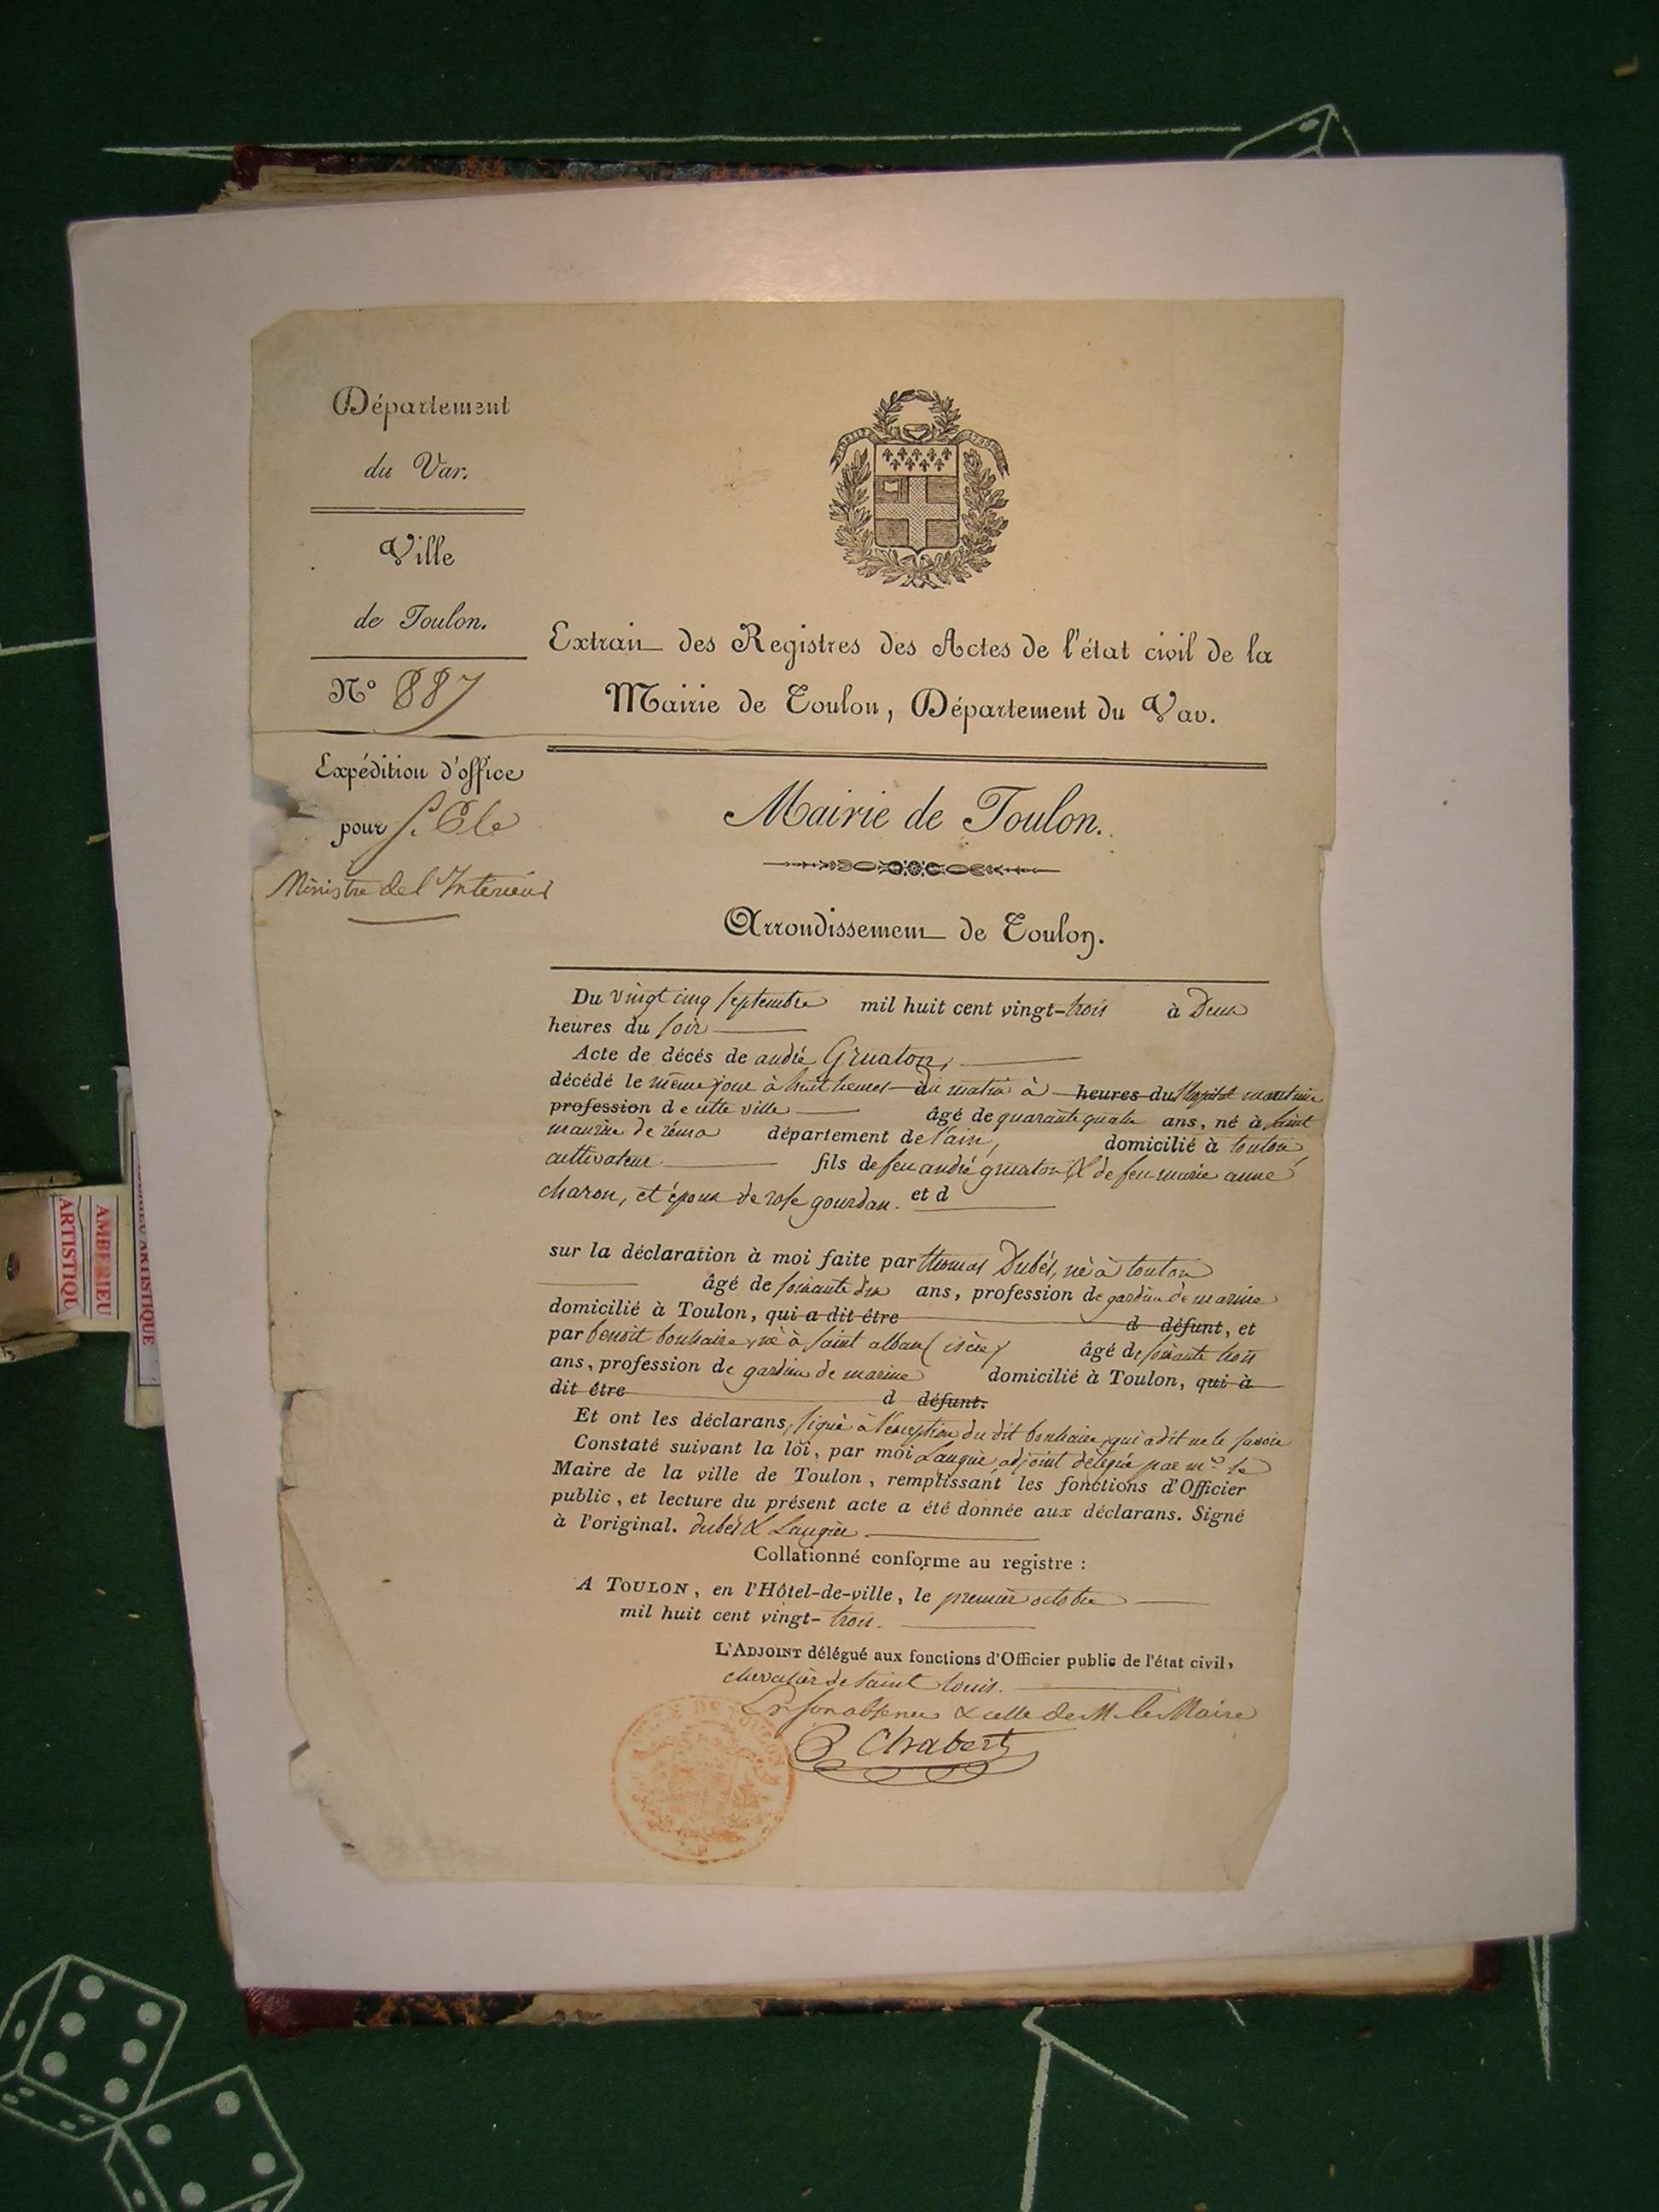 Département
du Var.
Ville
de Toulon.
N° 887
Expédition d'office
pour S. E le
Ministre de l'Intérieur
Extrait des Registres des Actes de l'état civil de la
Mairie de Toulon, Département du Var.
Mairie de Toulon.
Arrondissement de Toulon.
Du vingt cinq septembre mil huit cent vingt-trois à Deux
heures du soir
Acte de décés de andré Gruaton,
décédé le même jour à huit heures du matin à heures du l'hopital maritime
profession de cette ville âgé de quarante quatre ans, né à saint
maurice de rémo département de l'ain, domicilié à toulon
cultivateur fils de feu andré gruaton & de feu marie anne
charon, et époux de rose gourdan. et d
sur la déclaration à moi faite par thomas Dubés, né à toulon
âgé de soixante dix ans, profession de gardien de marine
domicilié à Toulon, qui a dit être d défunt, et
par benoit né à saint alban (isère) âgé de soixante trois
ans, profession de gardien de marine domicilié à Toulon, qui à
dit être d défunt.
Et ont les déclarans, signé à l'exception du dit qui a dit ne le savoir
Constaté suivant la loi, par moi Laugier, adjoint délégué par mr. le
Maire de la ville de Toulon, remplissant les fonctions d'Officier
public, et lecture du présent acte a été donnée aux déclarans. Signé
à l'original. dubés & Laugier
Collationné conforme au registre :
A TOULON, en l'Hôtel-de-ville, le premier octobre
mil huit cent vingt-trois.
L'ADJOINT délégué aux fonctions d'Officier public de l'état civil,
chevalier de saint louis.
En son absence & celle de M. le Maire
Chabert
AMBERIEU
ARTISTIQU
ARTISTIQUE